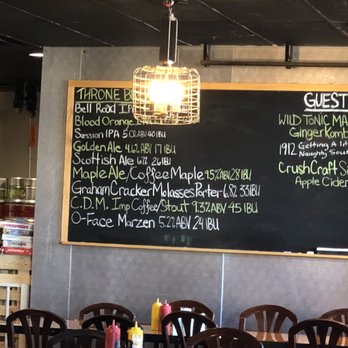 THRONE
Bell Road
Blood Orange
Session IPA 5.0% ABV 40 IBU
Golden Ale 4.6% ABV 17 IBU
Scottish Ale 24 IBU
Maple Ale/Coffee Maple 28 IBU
Graham Cracker Molasses Porter 33 IBU
C.D.M. Imp Coffee/Stout 9.3% ABV 45 IBU
O-Face Marzen 5.2% ABV 24 IBU
GUEST
WILD TONIC
Ginger
1912 Getting A
Naughty
CrushCraft
Apple Cider